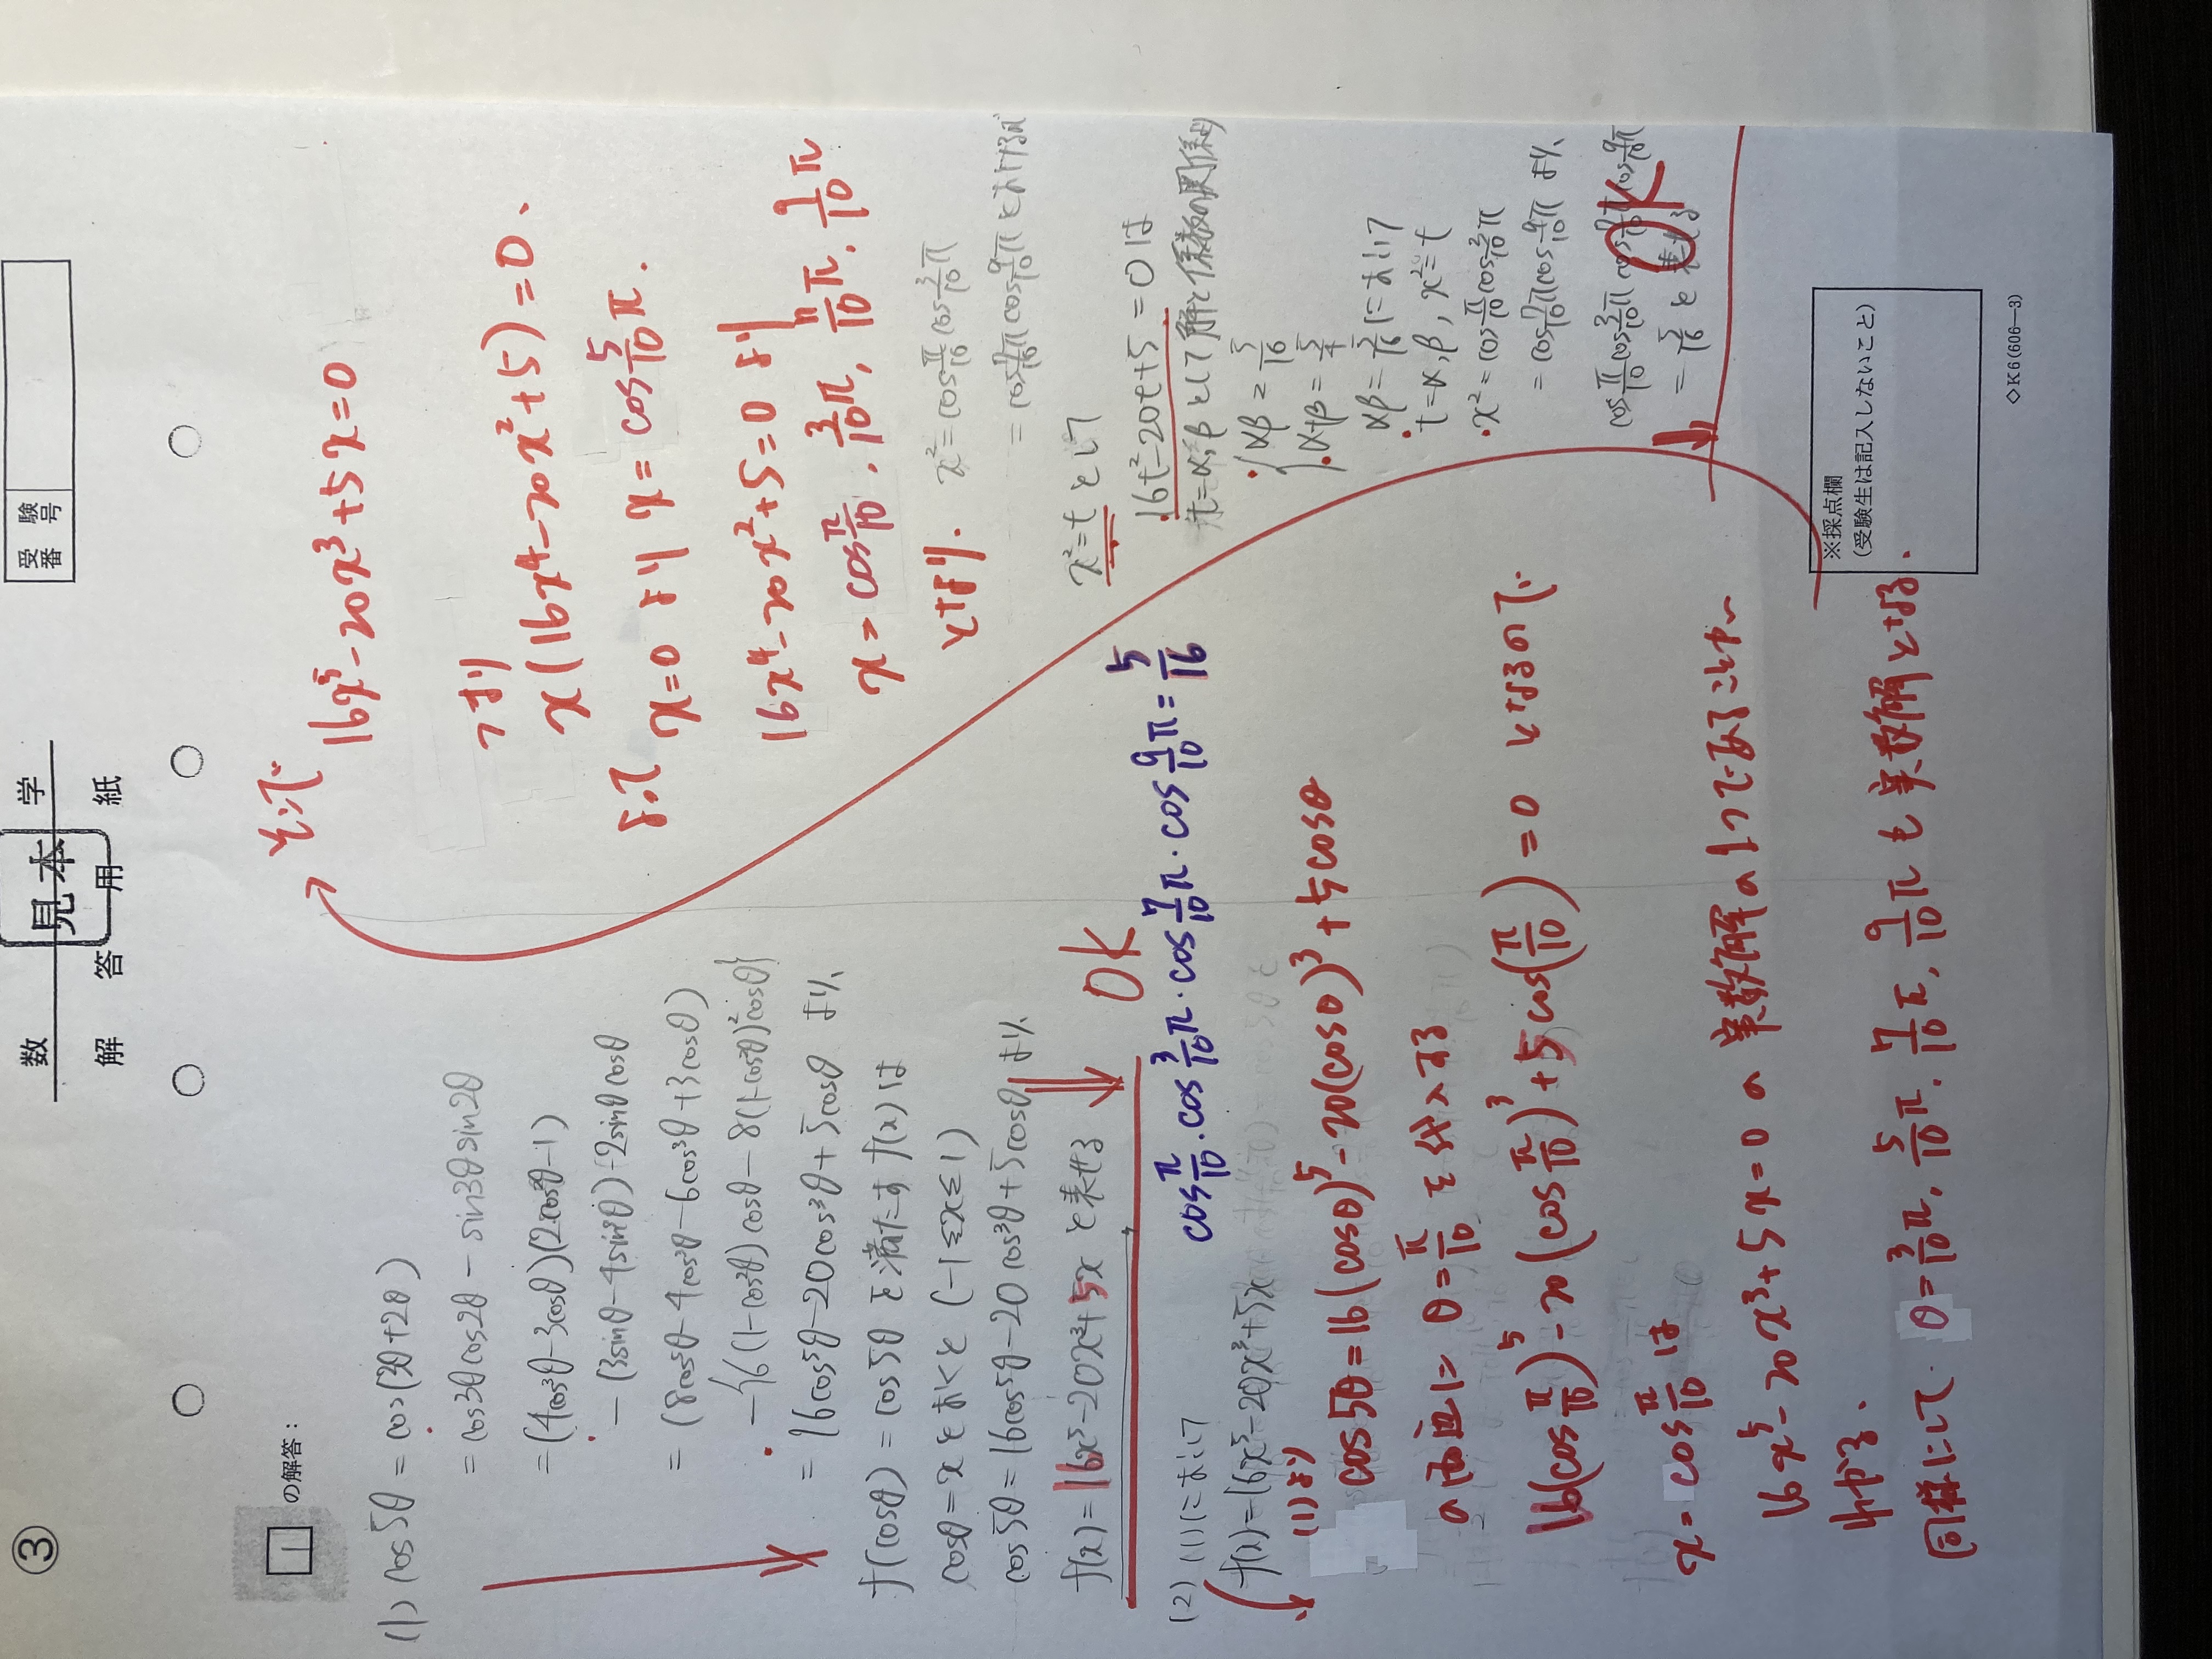 ③
数 学
見本
解 答 用 紙
受験
番号
1 の解答：
(1) cos5θ = cos(3θ+2θ)
= cos3θcos2θ - sin3θsin2θ
= (4cos³θ-3cosθ)(2cos²θ-1)
- (3sinθ-4sin³θ)・2sinθcosθ
= (8cos⁵θ-4cos³θ-6cos³θ+3cosθ)
- {6(1-cos²θ)cosθ - 8(1-cos²θ)²cosθ}
= 16cos⁵θ-20cos³θ+5cosθ より、
f(cosθ) = cos5θ を満たす f(x) は
cosθ=x とおくと (-1≦x≦1)
cos5θ = 16cos⁵θ-20cos³θ+5cosθ より、
f(x) = 16x⁵-20x³+5x と表せる
OK
cosπ/10・cos3/10π・cos7/10π・cos9/10π = 5/16
(2) (1)において
f(x)=16x⁵-20x³+5x
(1)より
cos5θ = 16(cosθ)⁵ - 20(cosθ)³ + 5cosθ
の両辺に θ=π/10 を代入する
16(cosπ/10)⁵ - 20(cosπ/10)³ + 5cos(π/10) = 0 となるので
x = cosπ/10 は
16x⁵ - 20x³ + 5x = 0 の実数解の1つであることが
わかる、
同様にして、θ = 3/10π, 5/10π, 7/10π, 9/10π も実数解となる.
そこで
16x⁵ - 20x³ + 5x = 0
つまり
x(16x⁴ - 20x² + 5) = 0、
よって
x=0 より x = cos5/10π.
16x⁴ - 20x² + 5 = 0 より
x = cosπ/10, 3/10π, 7/10π, 9/10π
となり.
x² = cosπ/10cos3/10π
= cos7/10πcos9/10π とおければ
x²=t として
16t²-20t+5=0 は
t=α,βとして解と係数の関係より
αβ = 5/16
α+β = 5/4
αβ = 5/16 において
t=α,β, x²=t
x² = cosπ/10cos3/10π
= cos7/10πcos9/10π より、
cosπ/10cos3/10πcos7/10πcos9/10π
= 5/16 と表せる
OK
※採点欄
(受験生は記入しないこと)
◇K6(606—3)